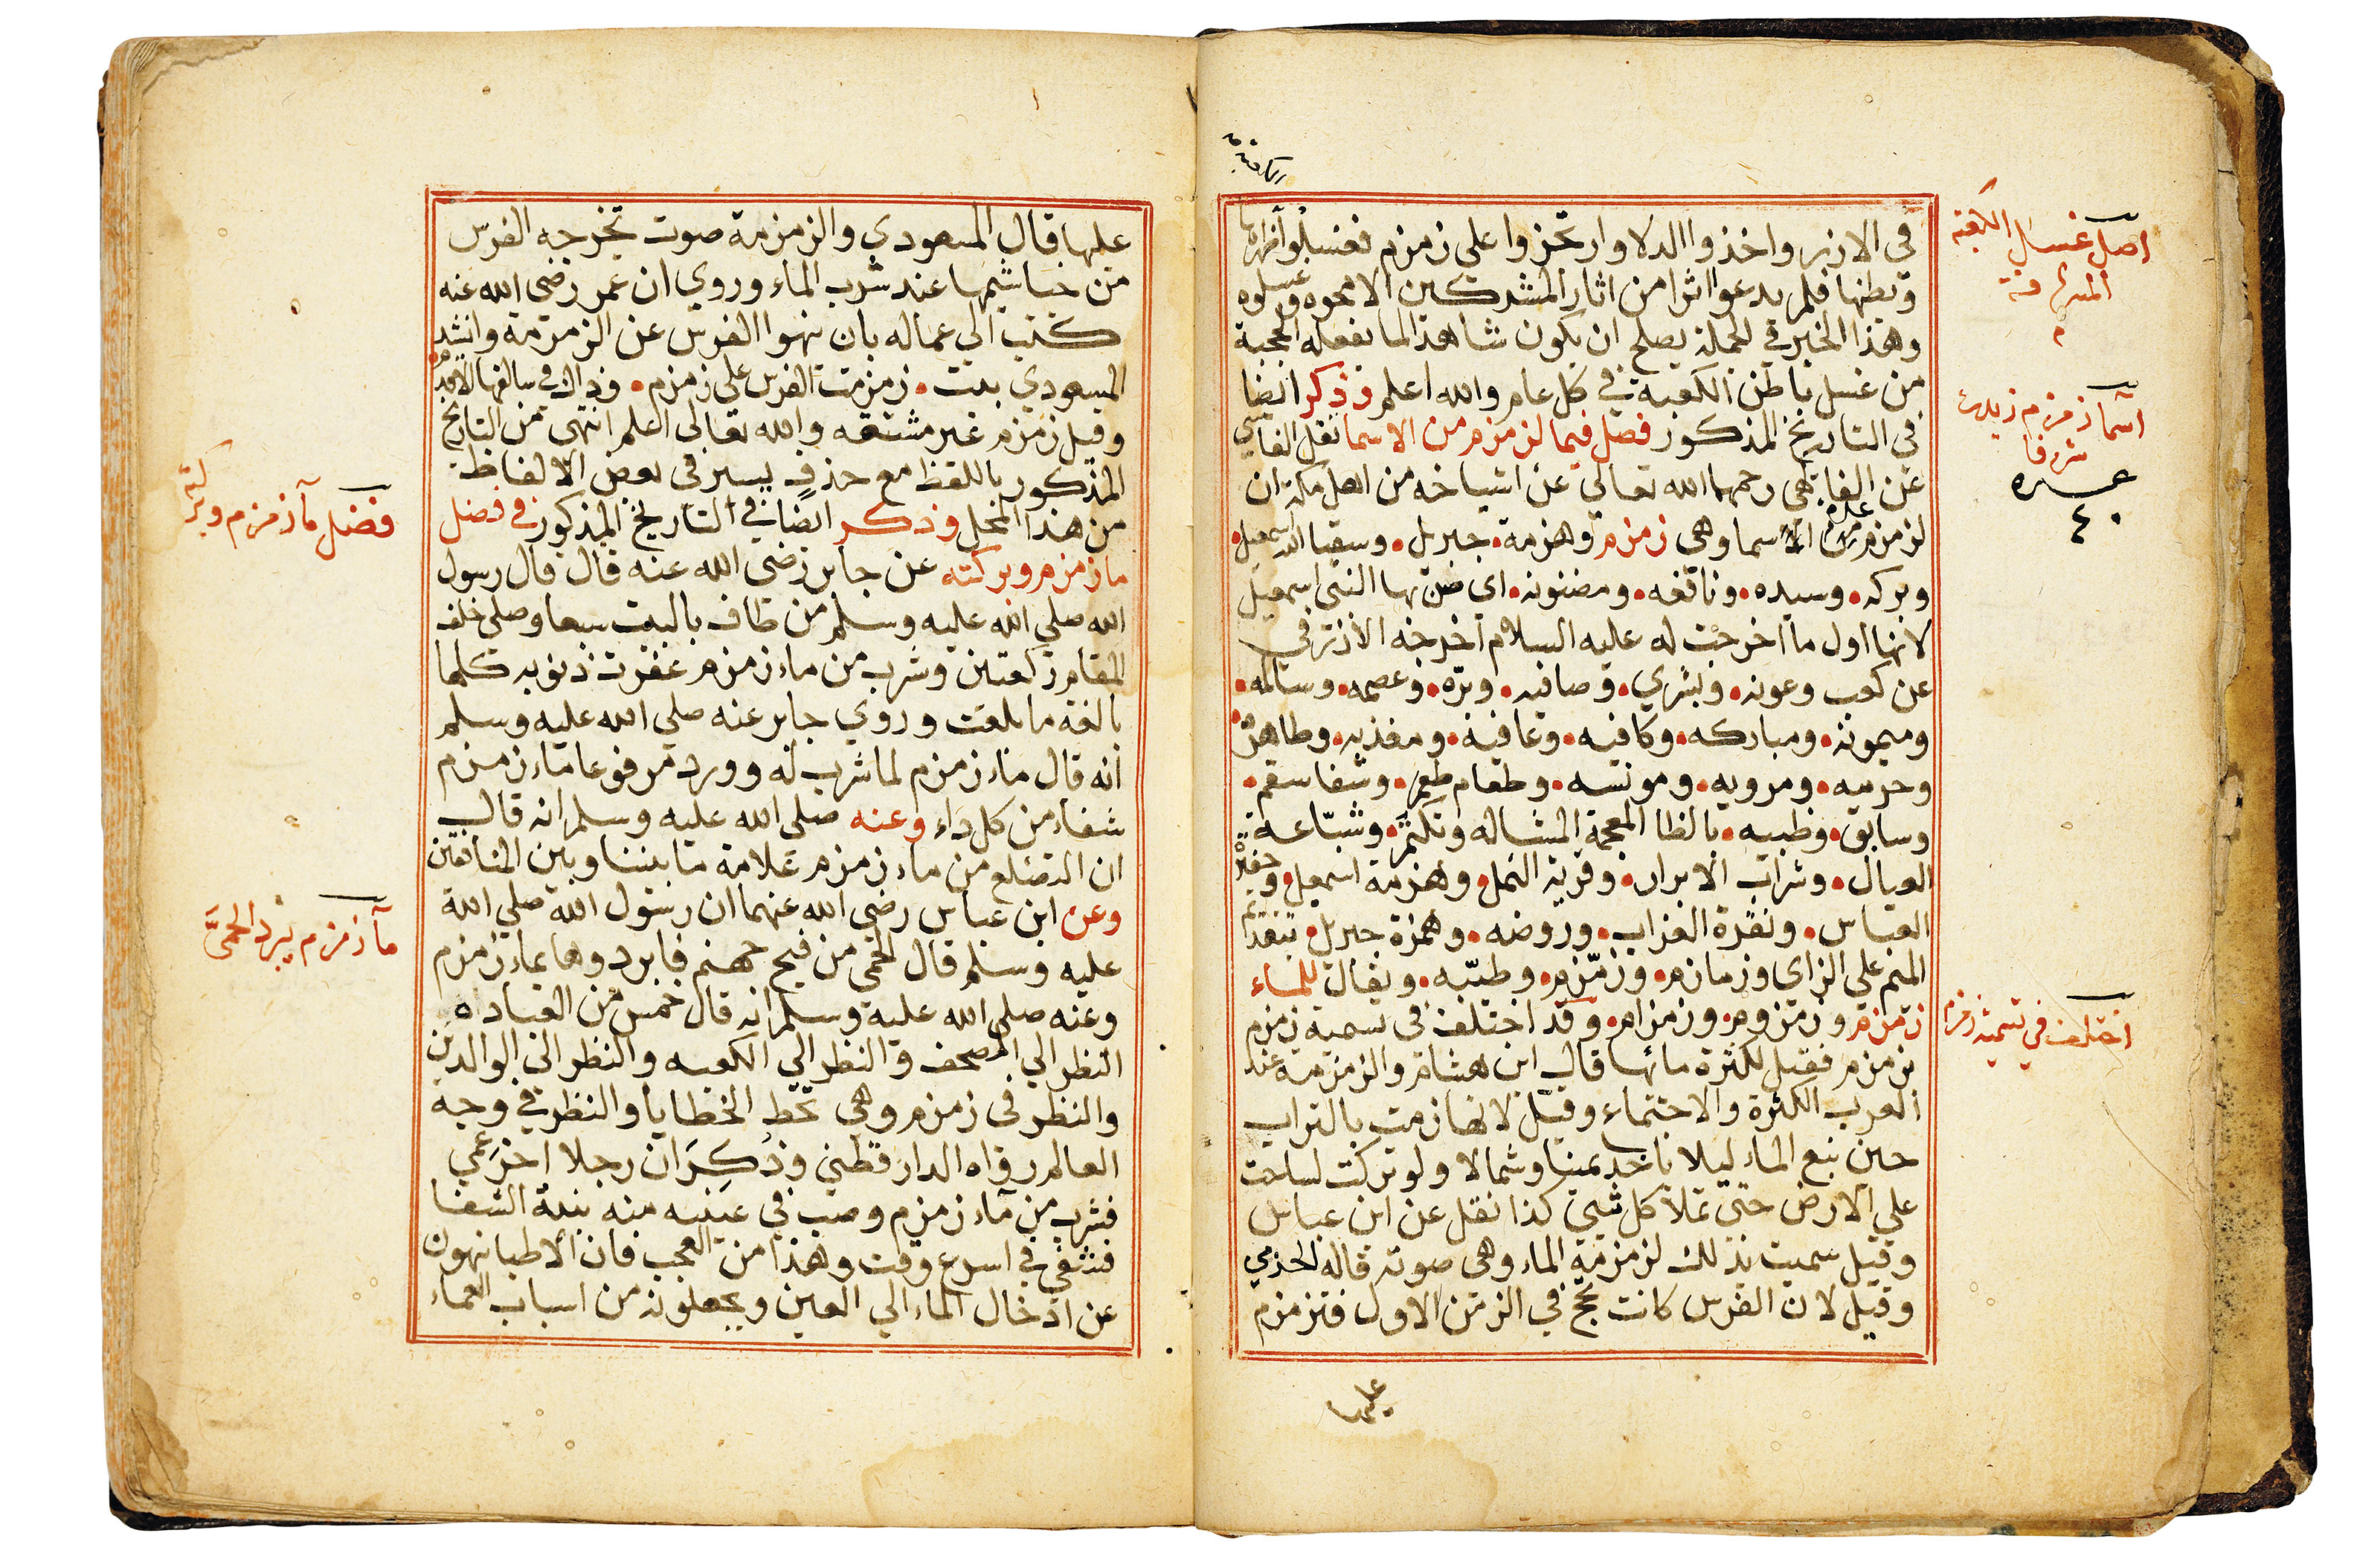 في الازر واخذوا الدلا وارتجزوا على زمزم فغسلوا ظهرها
وبطنها فلم يدعوا اثرا من اثار المشركين الا محوه وغسلوه
وهذا الخبر في الجملة يصلح ان يكون شاهدا لما يفعله الحجبة
من غسل باطن الكعبة في كل عام والله اعلم وذكر ايضا
في التاريخ المذكور فصل فيما لزمزم من الاسما نقل الفاسي
عن الفاكهي رحمهما الله تعالى عن اشياخه من اهل مكة ان
لزمزم عدة من الاسما وهي زمزم وهزمة جبريل وسقيا الله اسمعيل
وبركه وسيده ونافعه ومضنونه اي ضن بها النبي اسمعيل
لانها اول ما اخرجت له عليه السلام اخرجه الازرقي
عن كعب وعونه وبشري وصافيه وبره وعصمه وسالمه
وميمونه ومباركه وكافيه وعافية ومغذيه وطاهرة
وحرميه ومرويه ومونسه وطعام طعم وشفا سقم
وسابق وظبيه بالظا المعجمة المشاله وتكتم وشباعة
العيال وشراب الابرار وقرية النمل وهزمة اسمعيل وحفيرة
العباس ونقرة الغراب وروضه وهمزة جبريل بتقديم
الميم على الزاي وزمازم وزمزم وطيبه ويقال للماء
زمزم وزمزوم وزمزام وقد اختلف في تسمية زمزم
بزمزم فقيل لكثرة مائها قال ابن هشام والزمزمة عند
العرب الكثرة والاجتماع وقيل لانها زمت بالتراب
حين نبع الماء ليلا ياخد يمينا وشمالا ولو تركت لساحت
على الارض حتى تملا كل شيء كذا نقل عن ابن عباس
وقيل سميت بذلك لزمزمة الماء وهي صوته قاله الحربي
وقيل لان الفرس كانت تحج في الزمن الاول فتزمزم
عليها
اصل غسل الكعبة
المشرفة
اسما زمزم زيدت
شرفا
عده
٤٠
اختلف في تسمية زمزم
عليها قال المسعودي والزمزمة صوت تخرجه الفرس
من خياشيمها عند شرب الماء وروي ان عمر رضي الله عنه
كتب الى عماله بان نهوا الفرس عن الزمزمة وانشد
المسعودي بيت زمزمت الفرس على زمزم وذاك في سالفها الاقدم
وقيل زمزم غير مشتقه والله تعالى اعلم انتهى من التاريخ
المذكور باللفظ مع حذف يسير في بعض الالفاظ
من هذا المحل وذكر ايضا في التاريخ المذكور في فضل
ما زمزم وبركته عن جابر رضي الله عنه قال قال رسول
الله صلى الله عليه وسلم من طاف بالبيت سبعا وصلى خلف
المقام ركعتين وشرب من ماء زمزم غفرت ذنوبه كلها
بالغة ما بلغت وروي جابر عنه صلى الله عليه وسلم
انه قال ماء زمزم لما شرب له وورد مرفوعا ماء زمزم
شفاء من كل داء وعنه صلى الله عليه وسلم انه قال
ان التضلع من ماء زمزم علامة ما بيننا وبين المنافقين
وعن ابن عباس رضي الله عنهما ان رسول الله صلى الله
عليه وسلم قال الحمى من فيح جهنم فابردوها بماء زمزم
وعنه صلى الله عليه وسلم انه قال خمس من العبادة
النظر الى المصحف والنظر الى الكعبه والنظر الى الوالدين
والنظر في زمزم وهي تحط الخطايا والنظر في وجه
العالم رواه الدارقطني وذكر ان رجلا اخر عمي
فشرب من ماء زمزم وصب في عينيه منه بنية الشفا
فشفي في اسرع وقت وهذا من العجب فان الاطبا ينهون
عن ادخال الماء الى العين ويجعلونه من اسباب العماء
فضل مآ زمزم وبركته
مآ زمزم يبرد الحمى